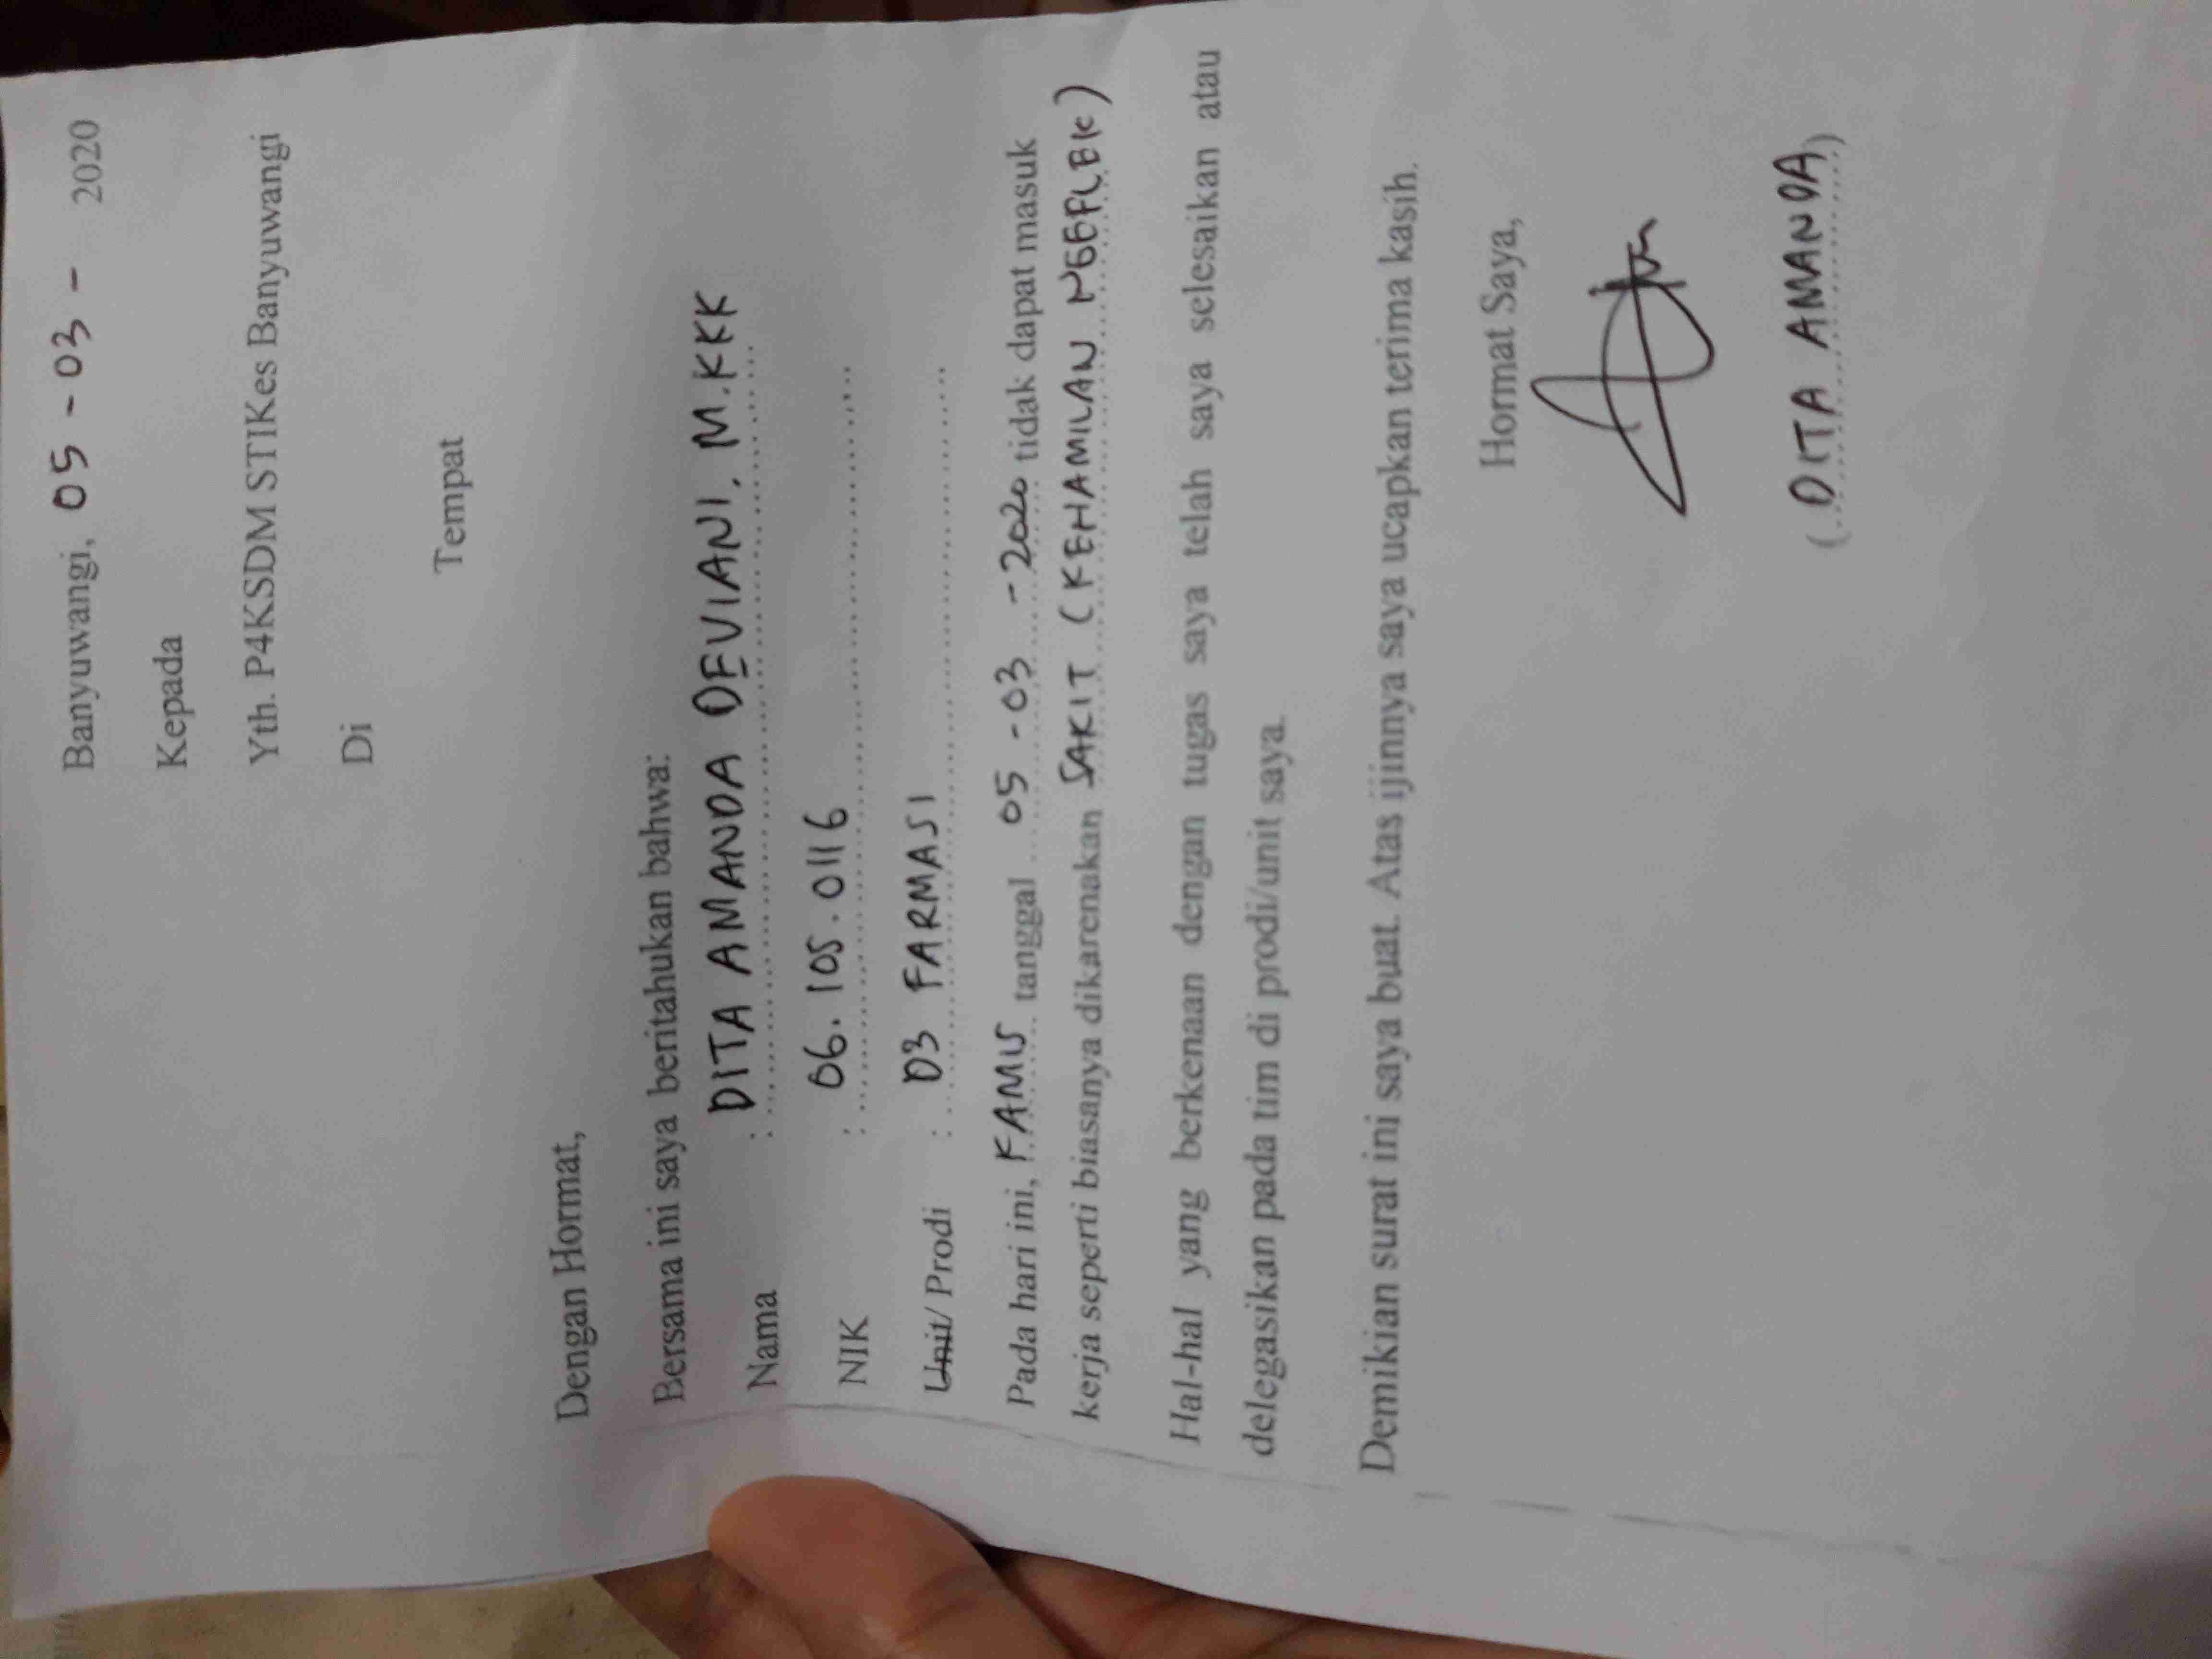 Banyuwangi, 05 - 03 - 2020
Kepada
Yth. P4KSDM STIKes Banyuwangi
Di
Tempat
Dengan Hormat,
Bersama ini saya beritahukan bahwa:
Nama : DITA AMANDA DEVIANI. M.KKK
NIK : 06.105.0116
Unit/ Prodi : D3 FARMASI
Pada hari ini, KAMIS tanggal 05 - 03 - 2020 tidak dapat masuk
kerja seperti biasanya dikarenakan SAKIT (KEHAMILAN NGEFLEK)
Hal-hal yang berkenaan dengan tugas saya telah saya selesaikan atau
delegasikan pada tim di prodi/unit saya.
Demikian surat ini saya buat. Atas ijinnya saya ucapkan terima kasih.
Hormat Saya,
(DITA AMANDA)